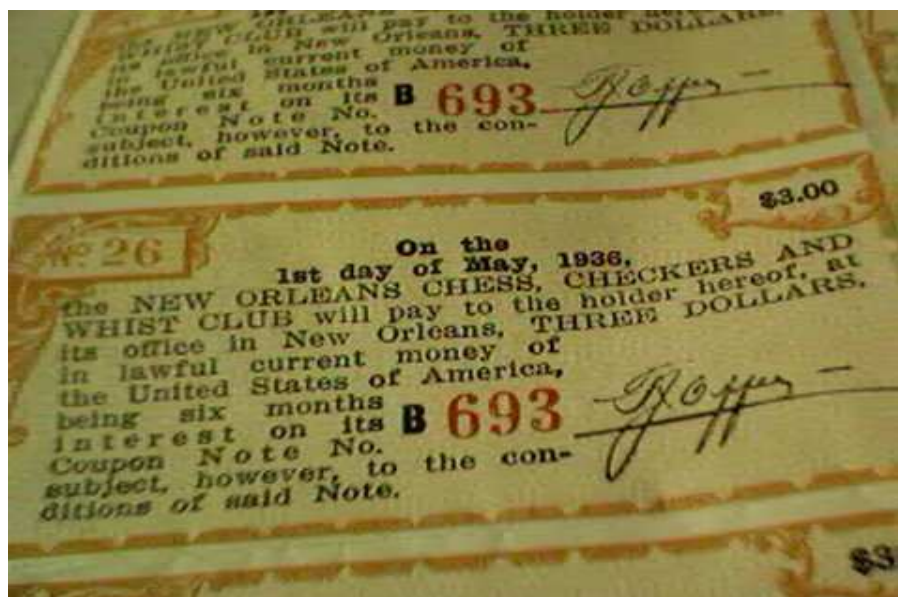 the NEW ORLEANS
WHIST CLUB will pay to the holder
its office in New Orleans, THREE DOLLARS,
in lawful current money of
the United States of America,
being six months
interest on its
Coupon Note No. B 693
subject, however, to the con-
ditions of said Note.
$3.00
No 26
On the
1st day of May, 1936,
the NEW ORLEANS CHESS, CHECKERS AND
WHIST CLUB will pay to the holder hereof, at
its office in New Orleans, THREE DOLLARS,
in lawful current money of
the United States of America,
being six months
interest on its
Coupon Note No. B 693
subject, however, to the con-
ditions of said Note.
$3